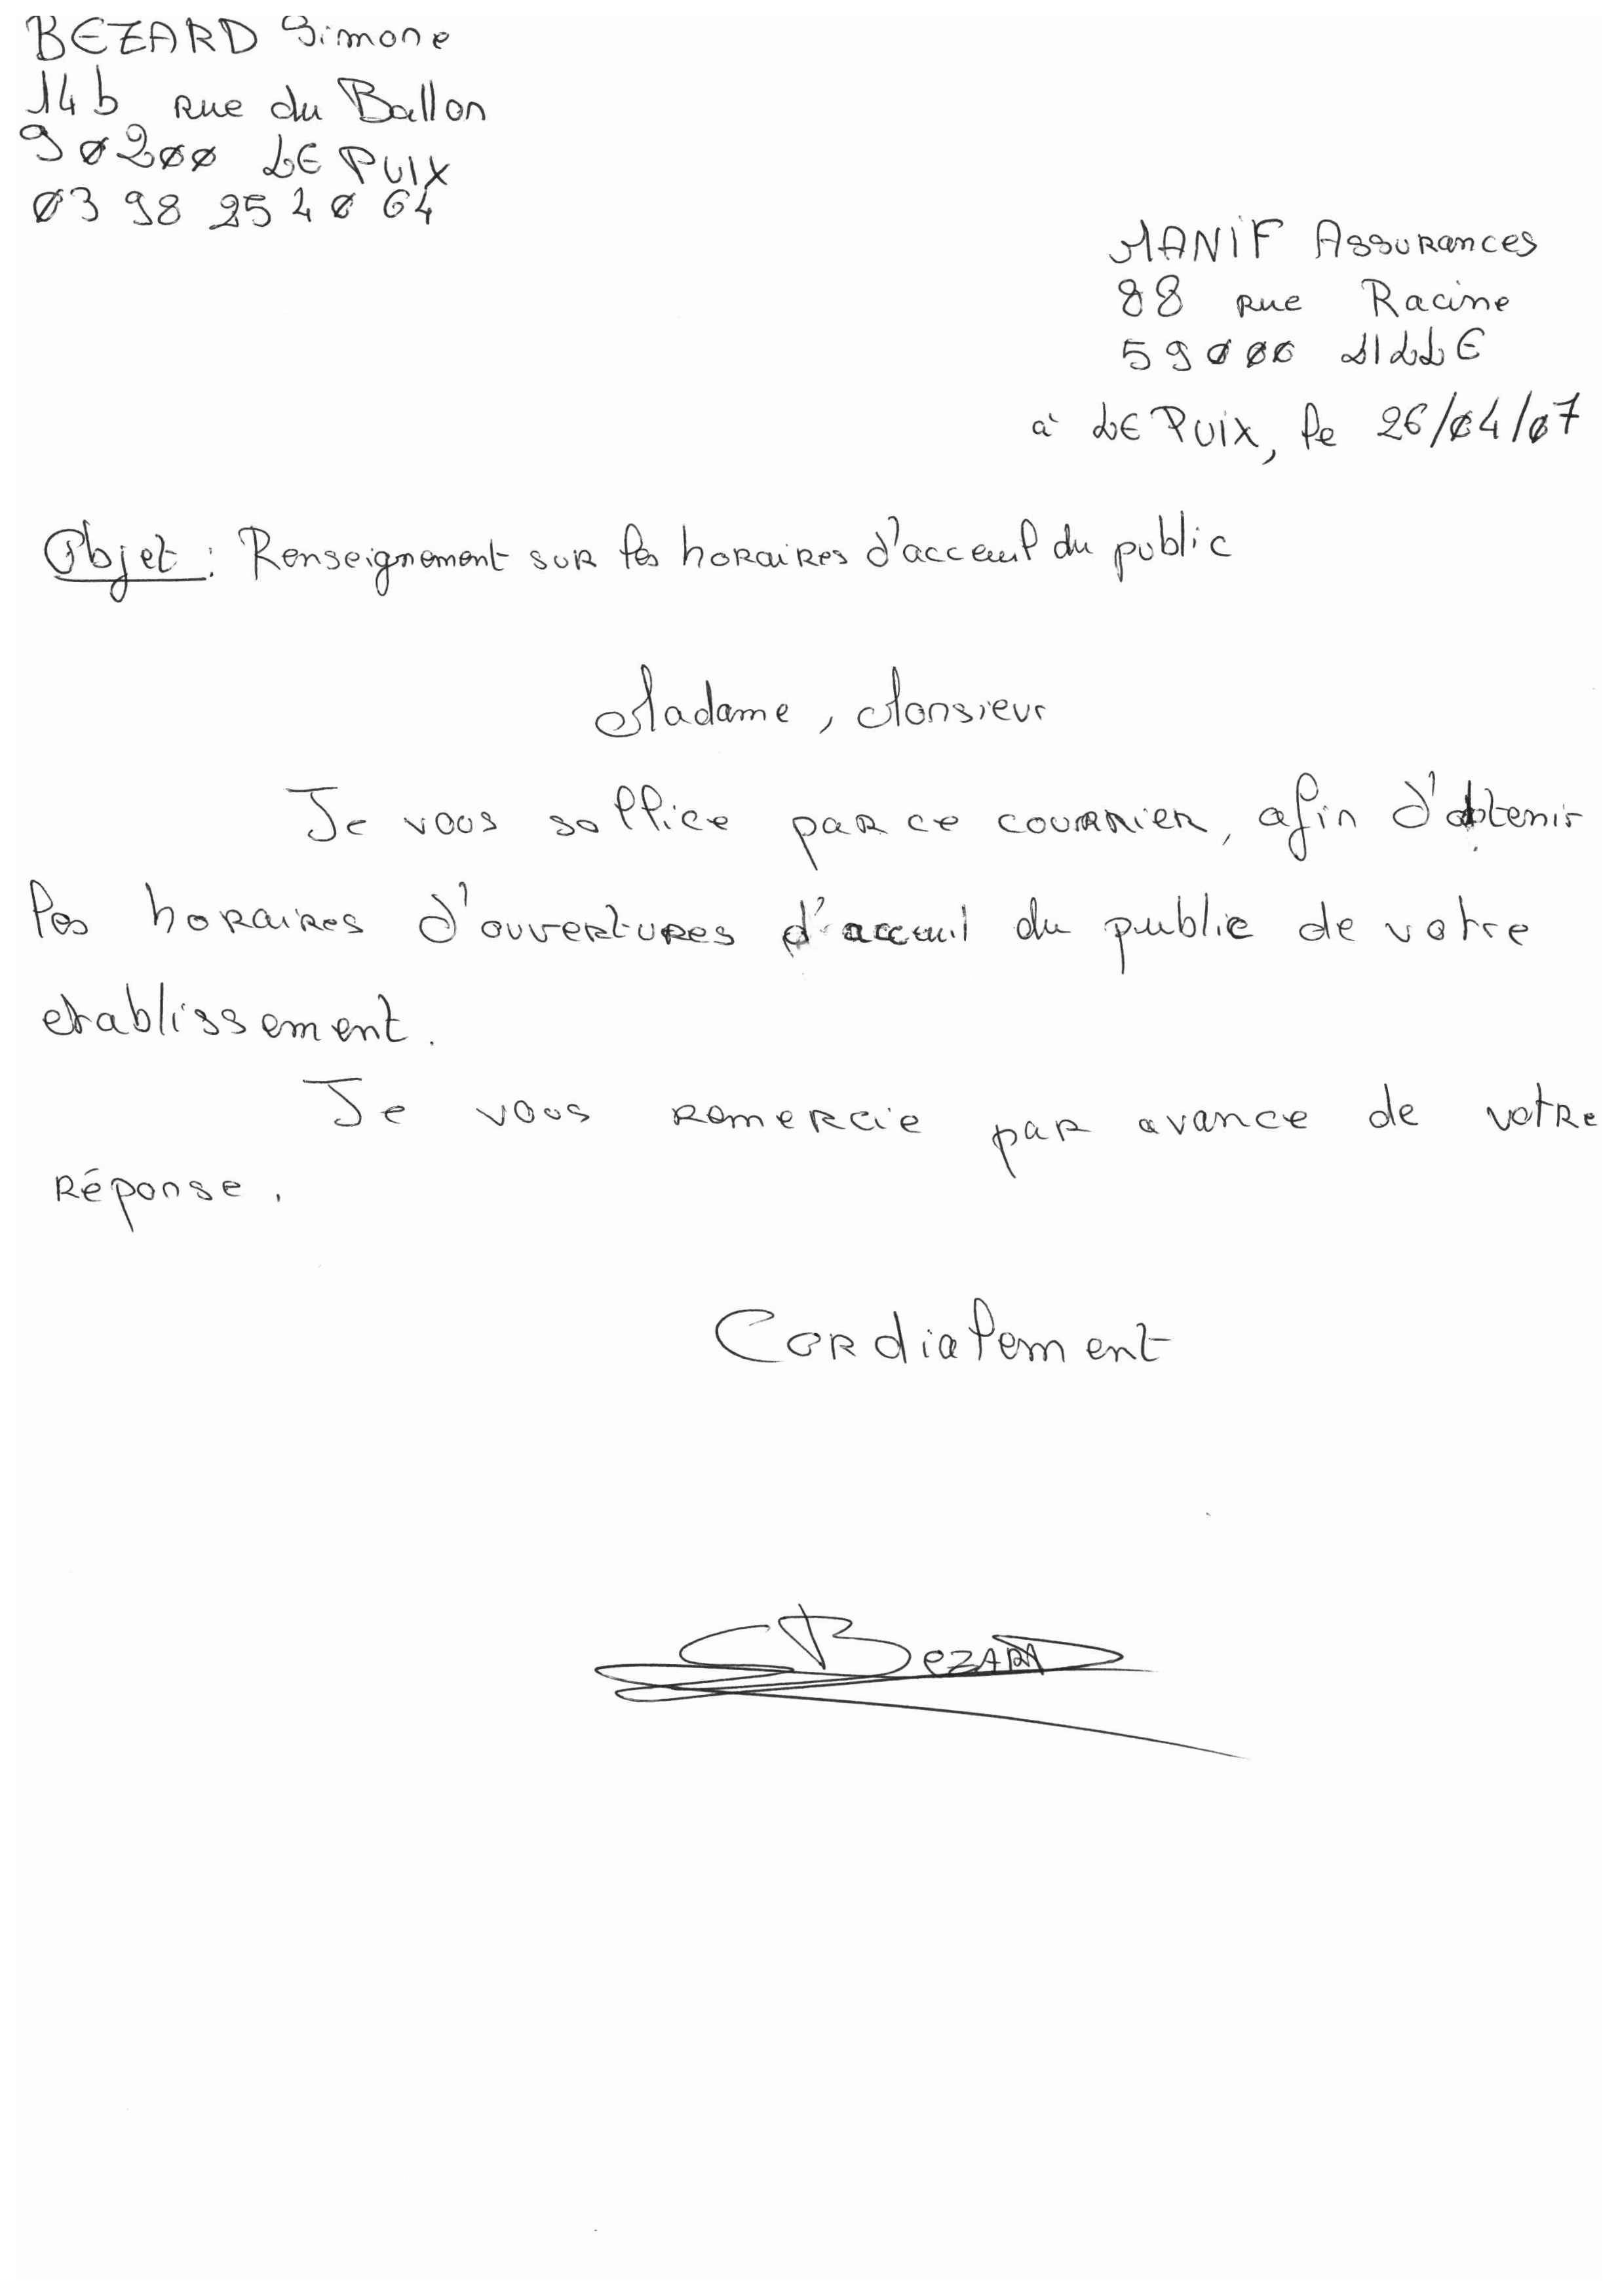 BEZARD Simone
14b rue du Ballon
90200 LE PUIX
03 98 25 20 64
MANIF Assurances
88 rue Racine
59000 LILLE
à LE PUIX, le 26/04/07
Objet : Renseignement sur les horaires d'acceuil du public
Madame, Monsieur
Je vous sollice par ce courrier, afin d'obtenir
les horaires d'ouvertures d'acceuil du public de votre
etablissement.
Je vous remercie par avance de votre
réponse.
Cordialement
BEZARD